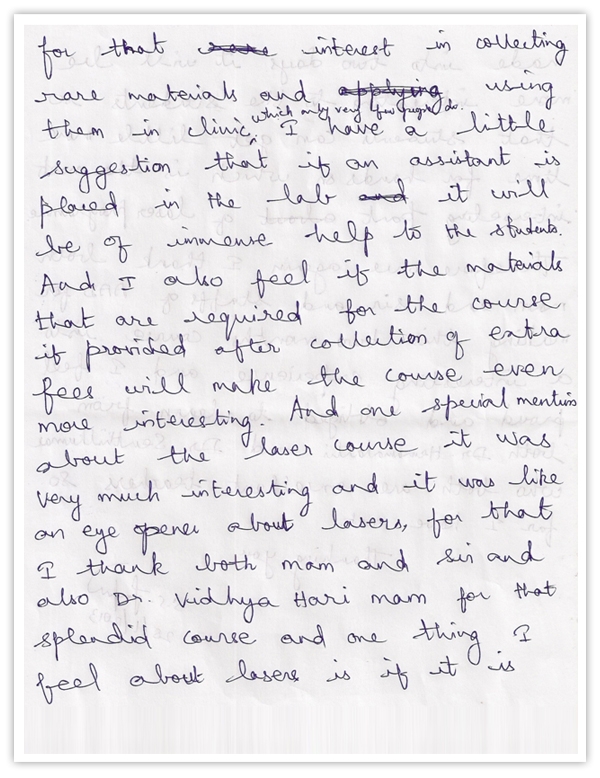 for that interest in collecting
rare materials and applying using
which only very few people do.
them in clinic. I have a little
suggestion that if an assistant is
placed in the lab and it will
be of immense help to the students.
And I also feel if the materials
that are required for the course
if provided after collection of extra
fees will make the course even
more interesting. And one special mention
about the laser course it was
very much interesting and it was like
an eye opener about lasers, for that
I thank both mam and sir and
also Dr. Vidhya Hari mam for that
splendid course and one thing I
feel about lasers is if it is